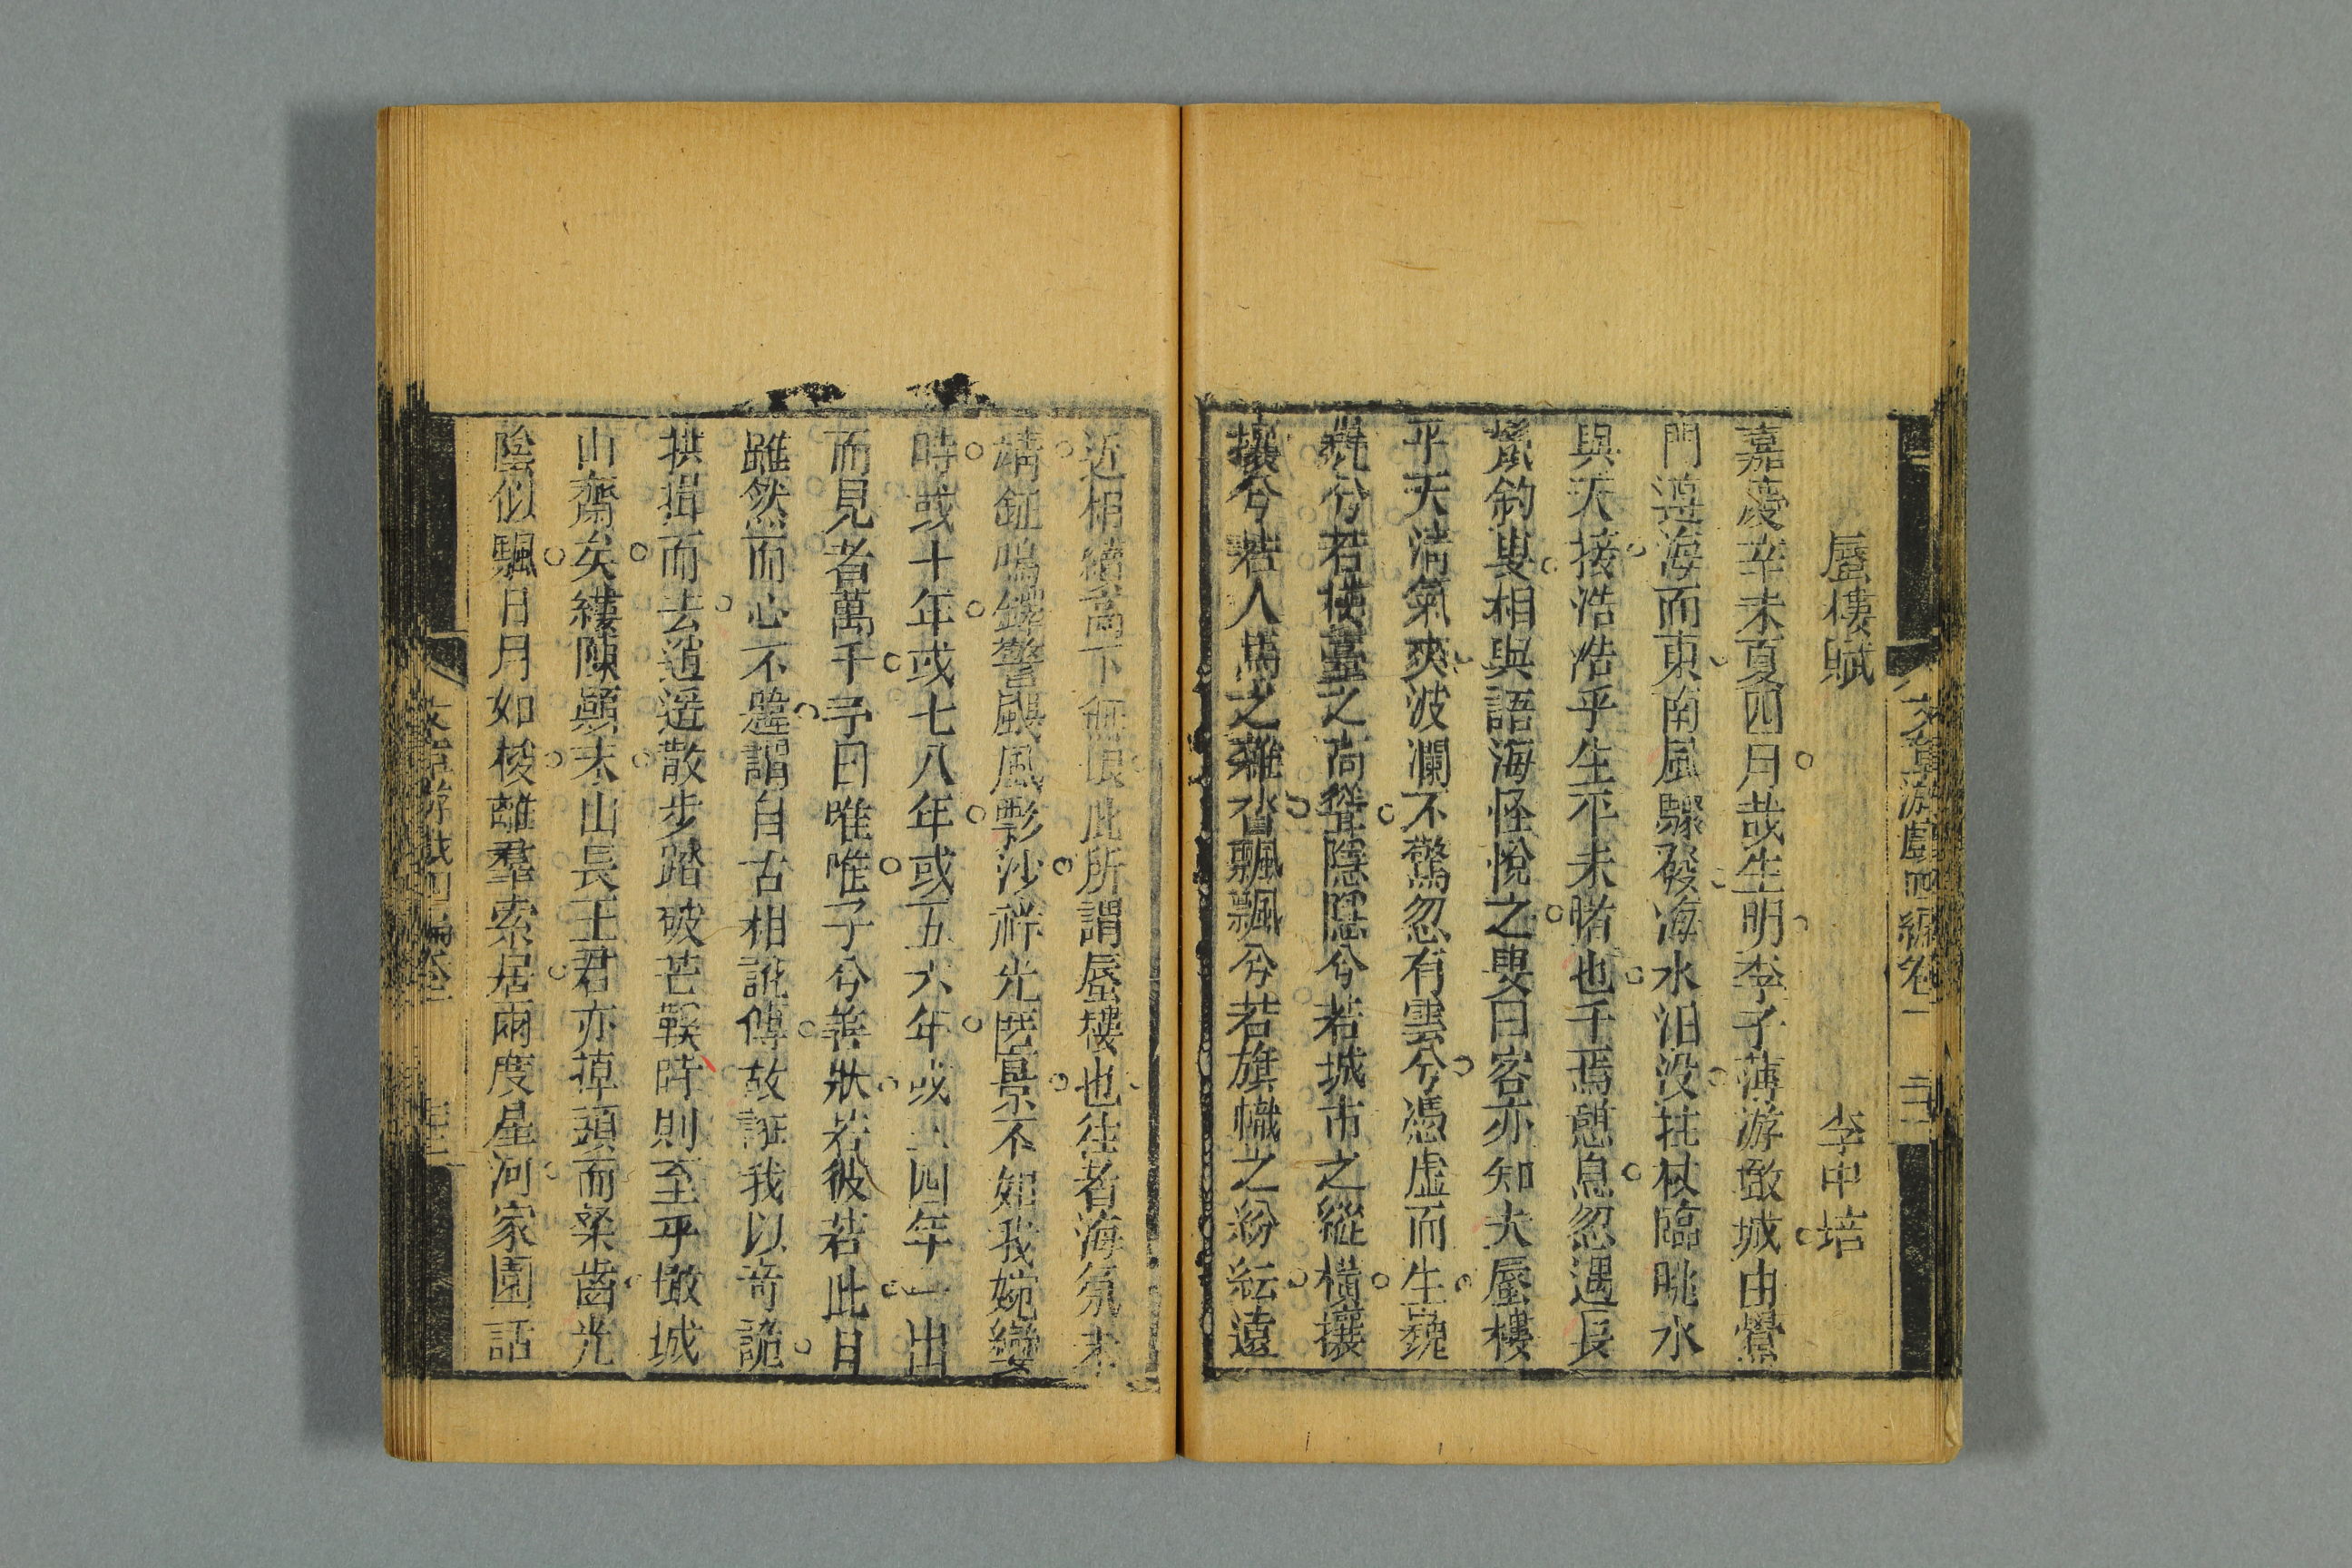 文章游戲四編卷一
蜃樓賦 李中培
嘉慶辛未夏四月哉生明李子薄游墩城由鶯
門遵海而東南風驟發海水汨没拄杖臨眺水
與天接浩浩乎生平未睹也于焉憩息忽遇長
鬚釣叟相與語海怪悅之叟曰客亦知夫蜃樓
乎天清氣爽波瀾不驚忽有雲兮憑虛而生巍
巍兮若樓臺之高聳隱隱兮若城市之縱橫攘
攘兮若人馬之雜沓飄飄兮若旗幟之紛紜遠
近相續高下無垠此所謂蜃樓也往者海氛未
靖鉦鳴鐸警颶風影沙祥光匿景不如我婉孌
時或十年或七八年或五六年或三四年一出
而見者萬千予曰唯唯子兮善狀若彼若此目
雖然而心不韙謂自古相訛傳故誑我以奇詭
拱揖而去逍遥散步踏破芒鞵時則至乎墩城
山齋矣縷陳顛末山長王君亦掉頭而粲齒光
陰似颿日月如梭離羣索居兩度星河家園話